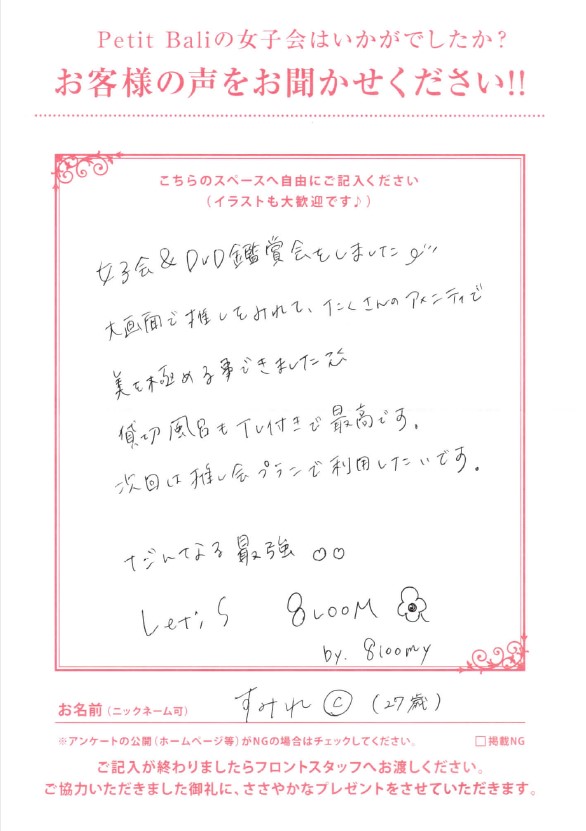 Petit Baliの女子会はいかがでしたか？
お客様の声をお聞かせください!!
こちらのスペースへ自由にご記入ください
(イラストも大歓迎です♪)
女子会&DVD鑑賞会をしました
大画面で推しをみれて、たくさんのアメニティで
美を極める事できました
貸切風呂もTV付きで最高です。
次回は推し会プランで利用したいです。
最強
Let's 8LOOM
by. 8loomy
お名前(ニックネーム可) すみれ© (27歳)
※アンケートの公開(ホームページ等)がNGの場合はチェックしてください。 □掲載NG
ご記入が終わりましたらフロントスタッフへお渡しください。
ご協力いただきました御礼に、ささやかなプレゼントをさせていただきます。